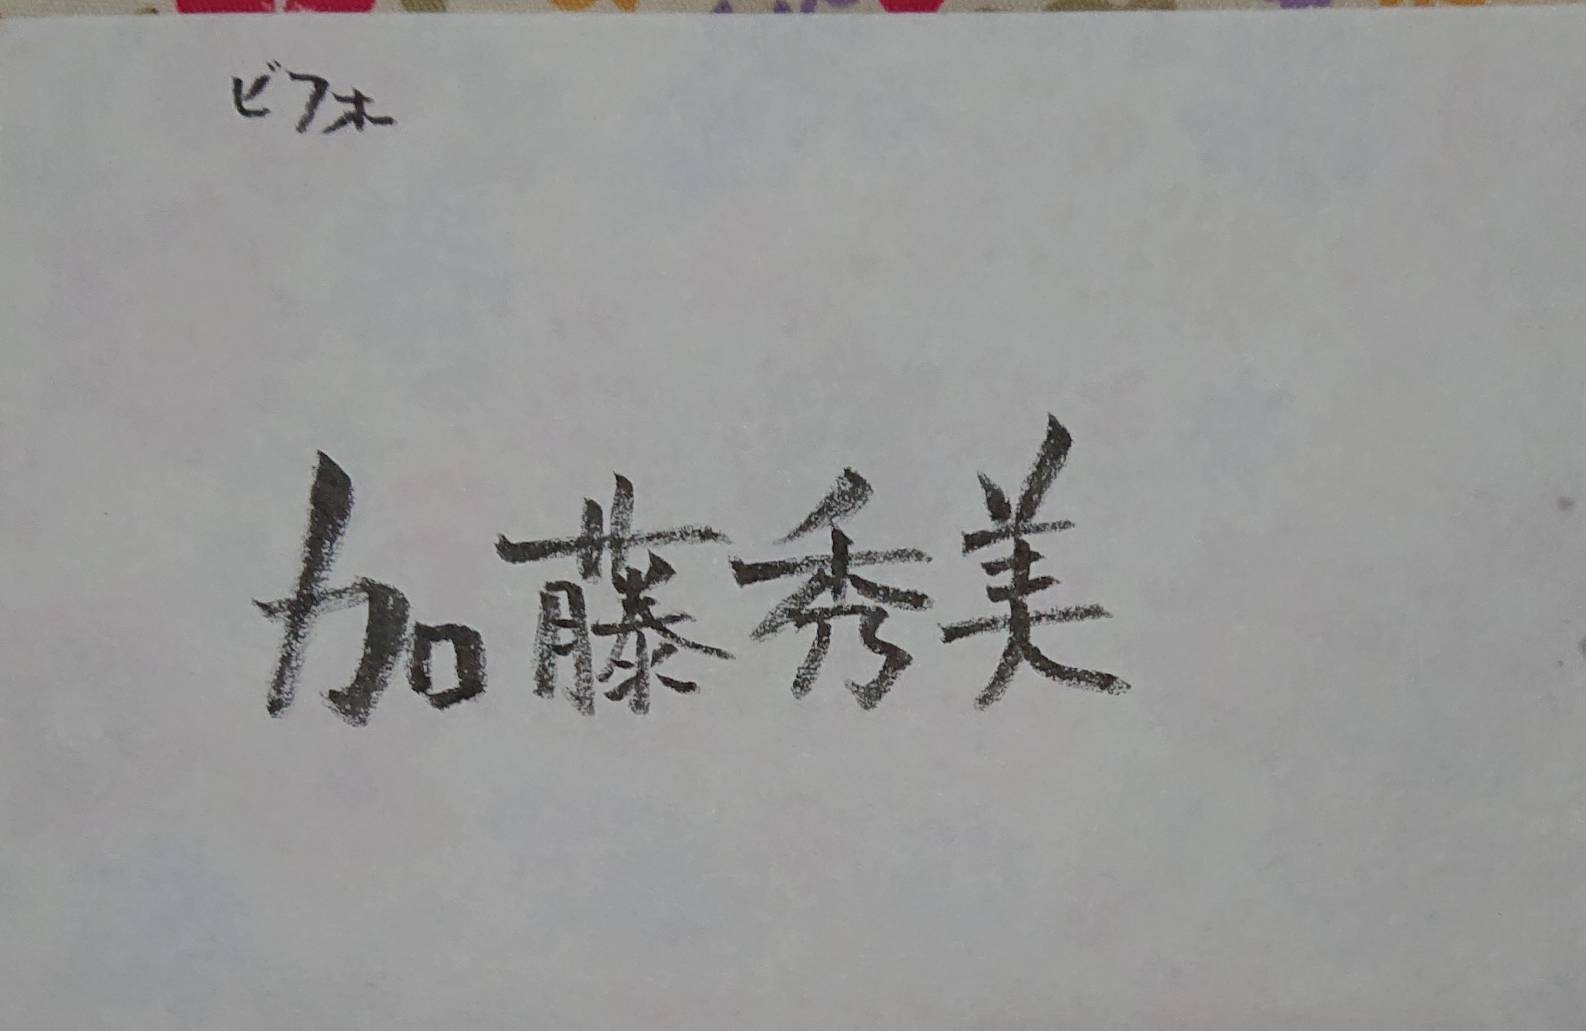 ビフォー
加藤秀美